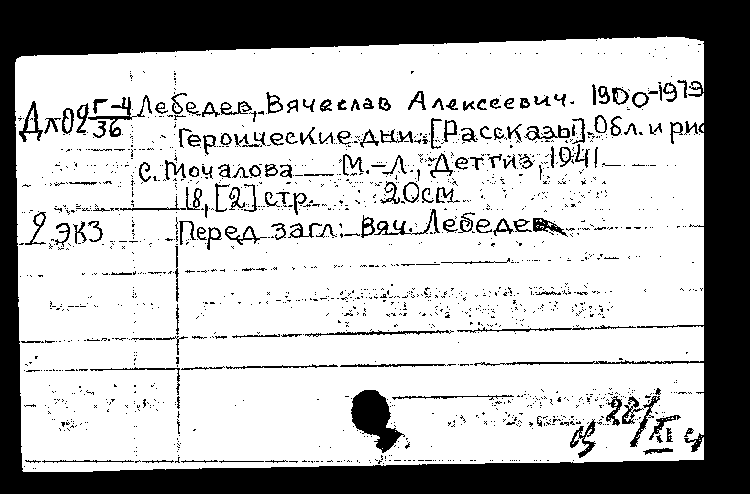 Дл02 Г-4/36 Лебедев, Вячеслав Алексеевич. 1900-1979
Героические дни. [Рассказы]. Обл. и рис
С. Мочалова М.-Л., Детгиз, 1941
18, [2] стр. 20см
2 экз Перед загл: Вяч. Лебедев
28/XI